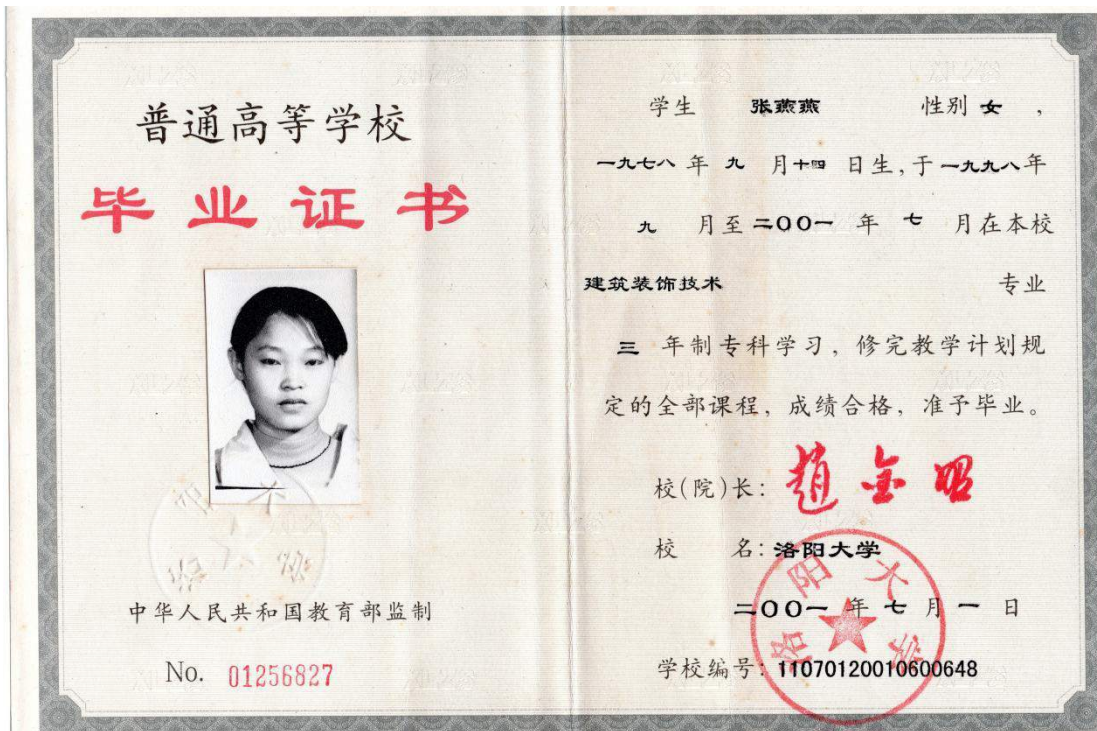 普通高等学校
毕业证书
中华人民共和国教育部监制
No. 01256827
学生 张燕燕 性别 女，
一九七八 年 九 月 十四 日生，于 一九九八 年
九 月至 二〇〇一 年 七 月在本校
建筑装饰技术 专业
三 年制专科学习，修完教学计划规
定的全部课程，成绩合格，准予毕业。
校(院)长：趙金昭
校 名：洛阳大学
二〇〇一 年 七 月 一 日
学校编号：11070120010600648
洛阳大学